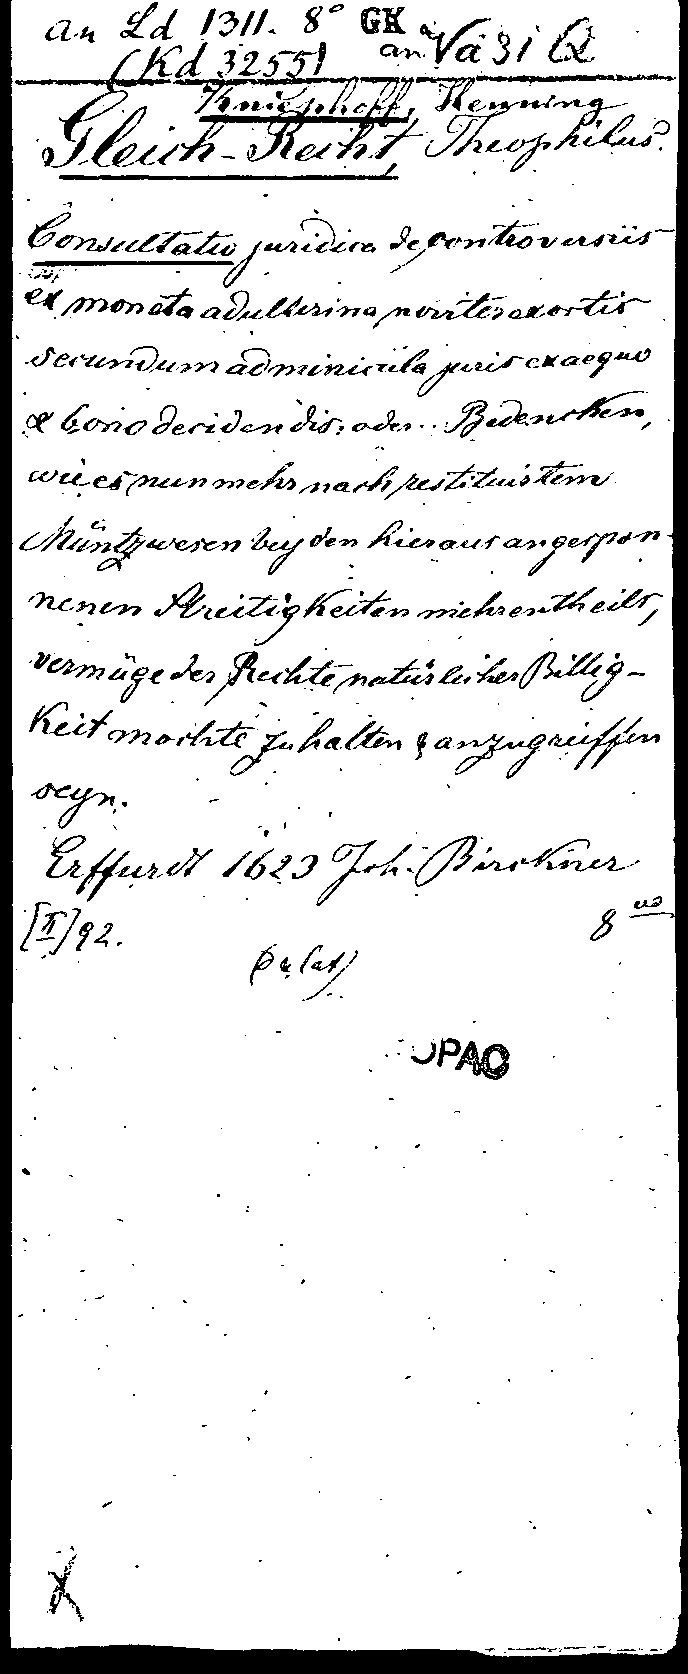 an Ld 1311. 8° GK
(Kd 3255) an Va 31 Q
Kniephoff, Henning
Gleich-Recht, Theophilus.
Consultatio juridica de controversiis
ex moneta adulterina noviter exortis
secundum adminicula juris ex aequo
& bono decidendis: oder. Bedencken,
wie es nunmehr nach restituirtem
Müntzwesen bey den hieraus angespon-
nenen Streitigkeiten mehrentheils,
vermüge der Rechte natürlicher Billig-
keit mochte zu halten & anzugreiffen
seyn.
Erffurdt 1623 Joh. Birckner
[II] 92. 8
OPAC